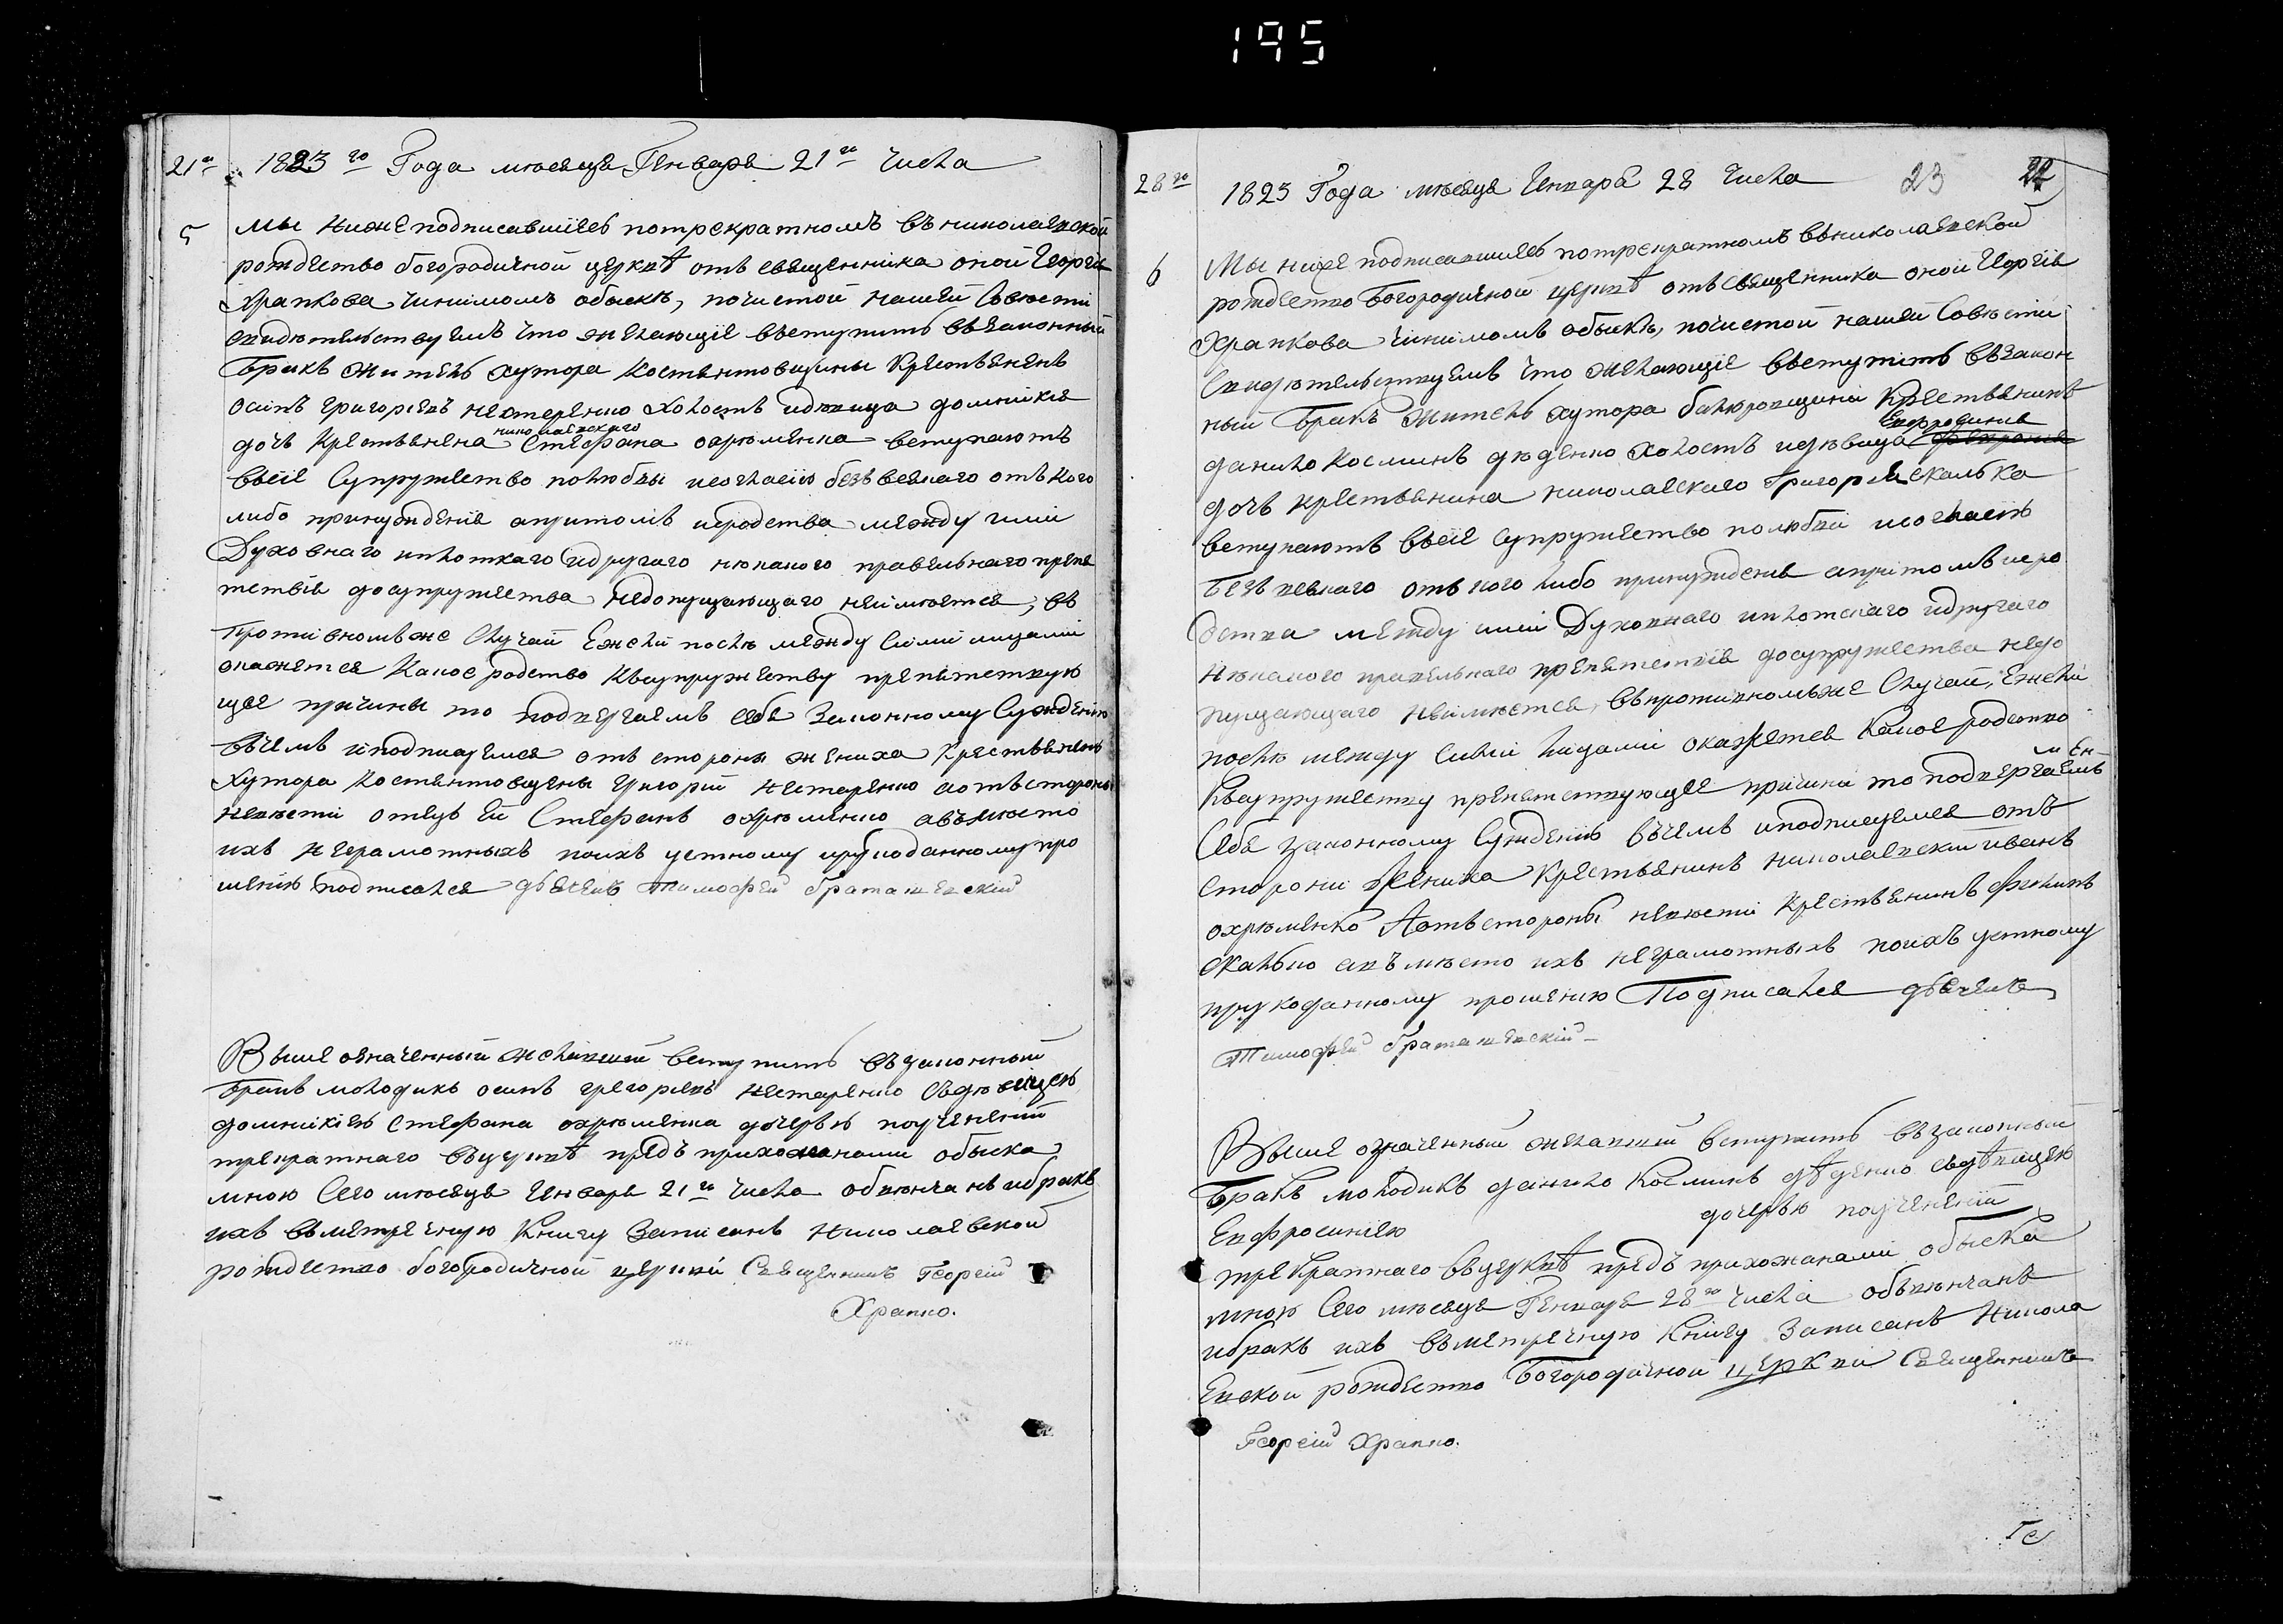 195
21го 1823го Года месяца Генваря 21го Числа
5 мы нижеподписавшіеся потрекратномъ въ николаевской
рождество богородичной церквѣ отъ священника оной Георгія
Храпкова чинимомъ обыскѣ, почистой нашей Совѣсти
свидѣтельствуемъ что желающіе вступить взаконный
бракъ житель хутора Костянтовщины Крестьянинъ
осипъ григорієвъ нестеренко Холостъ идѣвица домникія
николаевскаго
дочь Крестьянина Стефана охрѣменка вступаютъ
всіе Супружество полюбви исогласію безъ всякаго отъ Кого
либо принужденія апритомъ иродства между ими
Духовнаго иплотскаго идругаго нѣкакого правельнаго препя
тствія досупружества недопущающаго неимѣется, въ
противномъ же Случаѣ Ежели послѣ между Сими лицами
окажется Какое родство Ксупружеству препятствую
щее причины то подвергаемъ себя Законному Сужденію
въчемъ иподписуемся отъ стороны жениха Крестьянинъ
Хутора Костянтовщины Григорій Нестеренко аотъстороны
невѣсти отецъ Ей Стефанъ охрѣменко авъмѣсто
ихъ неграмотныхъ поихъ устному ируподанному про
шенію подписался дьячекъ Тимофей браташевскій
Выше означенный желавшій вступить въ законный
бракъ молодикъ осипъ грегориевъ нестеренко съдѣвицею
домникіею Стефана охрѣменка дочерью поучененіи
трекратнаго въцерквѣ предъ прихожанами обыска
мною Сего мѣсяца Генваря 21го числа обвѣнчанъ ибракъ
ихъ въметречную Книгу Записанъ Николаевской
рождество богородичной церкви Священникъ Георгій
Храпко.
28го 1823 Года мѣсяца Генваря 28 Числа 23 22
6 Мы нижеподписавшиясь потрекратномъ вниколаевской
рождество Богородичной церквѣ отъ священника оной Георгія
Храпкова чинимомъ обыскѣ, почистой нашей Совѣсти
Свидѣтельствуемъ что желающіе вступить взакон
ный бракъ житель хутора балюровщини Крестьянинъ
Евфросинія
данило Косминъ дѣденко Холостъ идѣвица
дочь крестьянина николаевскаго Григорія скалька
вступаютъ всіе Супружество полюбви исогласію
безъ всякаго отъ кого либо принужденія апритомъ иро
дства между ими Духовнаго иплотскаго идругаго
нѣкакого правельнаго препятствія досупружества недо
пущающаго неимѣется, въпротивномъже Случай, Ежели
послѣ между сими лицами окажется Какое родство
Ксупружеству препятствующее причини то подвергаемъ
Себя законному Сужденію въчемъ иподписуемся отъ
стороны жениха Крестьянинъ николаевскій иванъ
охрѣменко Аотъстороны невѣсти Крестьянинъ
скалько авъмѣсто ихъ неграмотныхъ поихъ устному
ирукоданному прошению Подписался дьячекъ
Тимофей браташевскій
Выше означенный желавшій вступить въ законный
бракъ молодикъ данило Косминъ дѣденко съдѣвицею
Евфросиніею дочерью поучененіи
трекратнаго въцерквѣ предъ прихожанами обыска
мною Сего мѣсяца Генваря 28го числа обвѣнчанъ
ибракъ ихъ въметречную Книгу Записанъ Никола
Евской рождество Богородичной церкви Священникъ
Георгій Храпко.